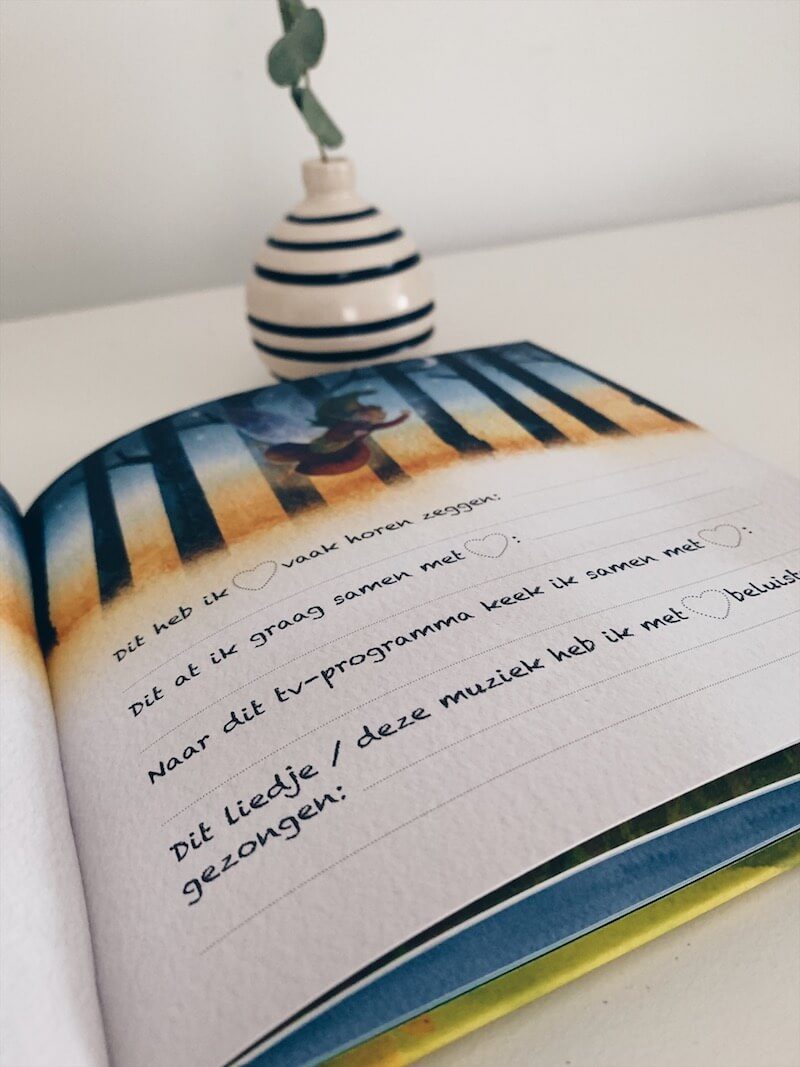 Dit heb ik vaak horen zeggen:
Dit at ik graag samen met :
Naar dit tv-programma keek ik samen met :
Dit liedje / deze muziek heb ik met
gezongen: